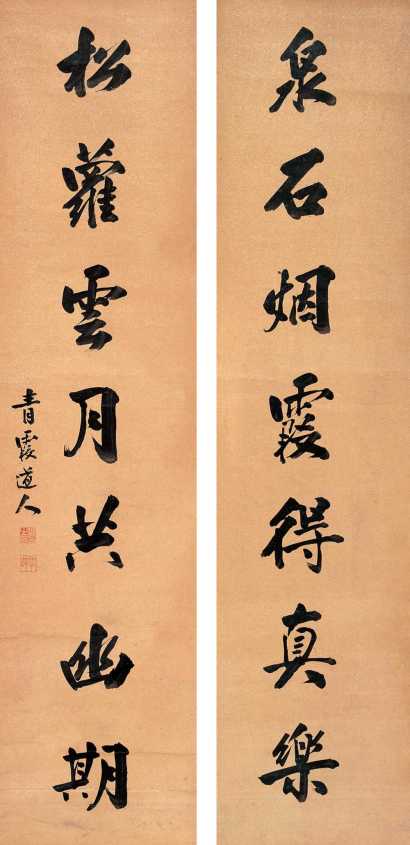 泉石烟霞得真樂
松蘿雲月共幽期
青霞道人